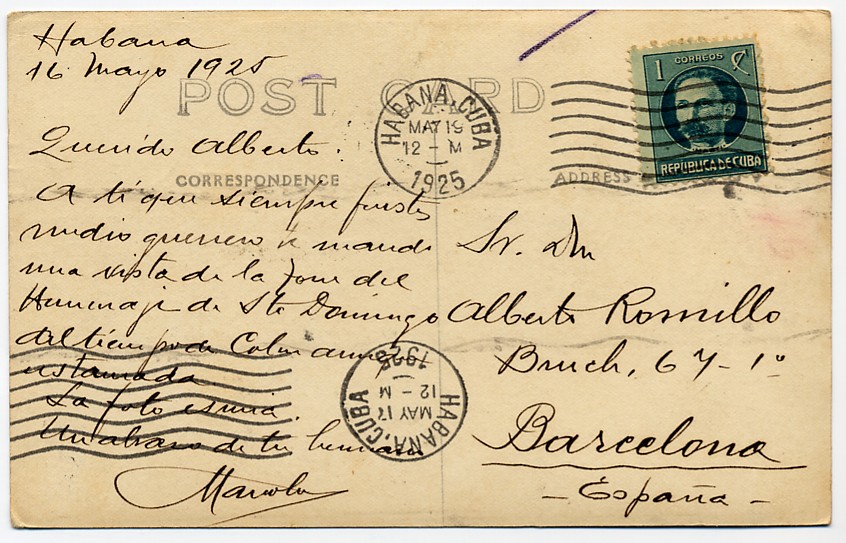 Habana
16 Mayo 1925
POST CARD
HABANA, CUBA
MAY 19
12 - M
1925
1 CORREOS C
REPUBLICA DE CUBA
Querido Alberto:
CORRESPONDENCE
ADDRESS
A ti que siempre fuiste
medio guerrero te mando
una vista de la Torre del
Homenaje de Sto Domingo
del tiempo de Colon
La foto es mia.
Un abrazo de tu hermano
Sr. Dn
Alberto Romillo
Bruch, 67-1º
Barcelona
- España -
HABANA, CUBA
MAY 17
12 - M
1925